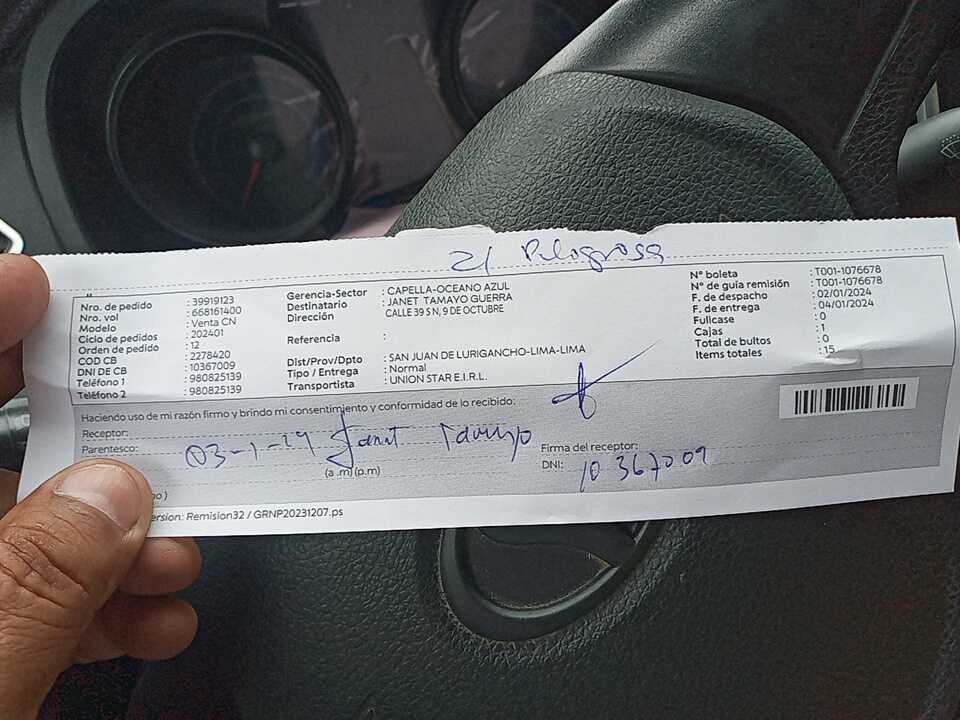 21 Peligrosa
Nro. de pedido : 39919123
Nro. vol : 668161400
Modelo : Venta CN
Ciclo de pedidos : 202401
Orden de pedido : 12
COD CB : 2278420
DNI DE CB : 10367009
Teléfono 1 : 980825139
Teléfono 2 : 980825139
Gerencia-Sector : CAPELLA-OCEANO AZUL
Destinatario : JANET TAMAYO GUERRA
Dirección CALLE 39 S N, 9 DE OCTUBRE
Referencia :
Dist/Prov/Dpto : SAN JUAN DE LURIGANCHO-LIMA-LIMA
Tipo / Entrega : Normal
Transportista : UNION STAR E.I.R.L.
N° boleta : T001-1076678
N° de guía remisión : T001-1076678
F. de despacho : 02/01/2024
F. de entrega : 04/01/2024
Fullcase : 0
Cajas : 1
Total de bultos : 0
Items totales : 15
Haciendo uso de mi razón firmo y brindo mi consentimiento y conformidad de lo recibido:
Receptor:
Parentesco: 03-1-24 Janet Tamayo
(a .m) (p.m)
Firma del receptor:
DNI: 10367009
no )
ersion: Remision32 / GRNP20231207.ps